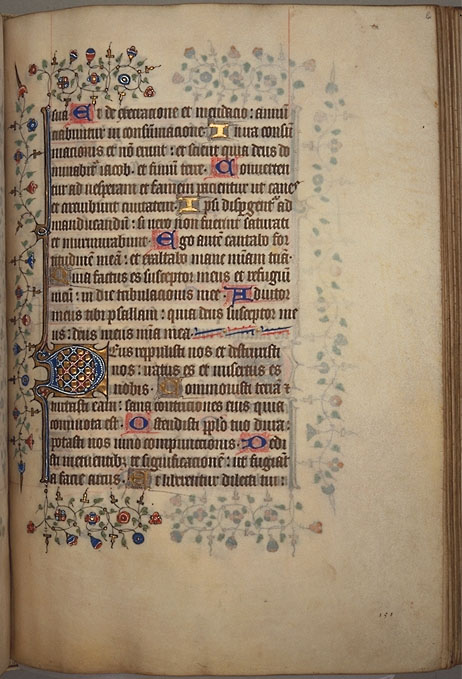 sua Et de execracione et mendacio : annun
ciabuntur in consumacione In ira consu
macionis et non erunt : et scient quia deus do
minabitur iacob et finium terre . Converten
tur ad vesperam et famem pacientur ut canes
et circuibunt civitatem . Ipsi dispergentur ad
manducandum : si vero non fuerint saturati
et murmurabunt . Ego autem cantabo for
titudinem meam : et exaltabo mane misericordiam tuam .
Quia factus es susceptor meus et refugium
meum : in die tribulacionis mee . Adiutor
meus tibi psallam : quia deus susceptor me
us : deus meus misericordia mea .
Deus reppulisti nos et destruxisti
nos : iratus es et misertus es
nobis . Commovisti terram et
turbasti eam : sana contriciones eius quia
commota est . Ostendisti populo tuo dura :
potasti nos vino compunctionis . Dedi
sti metuentibus te significationem : ut fugiant
a facie arcus . Ut liberentur dilecti tui :
151